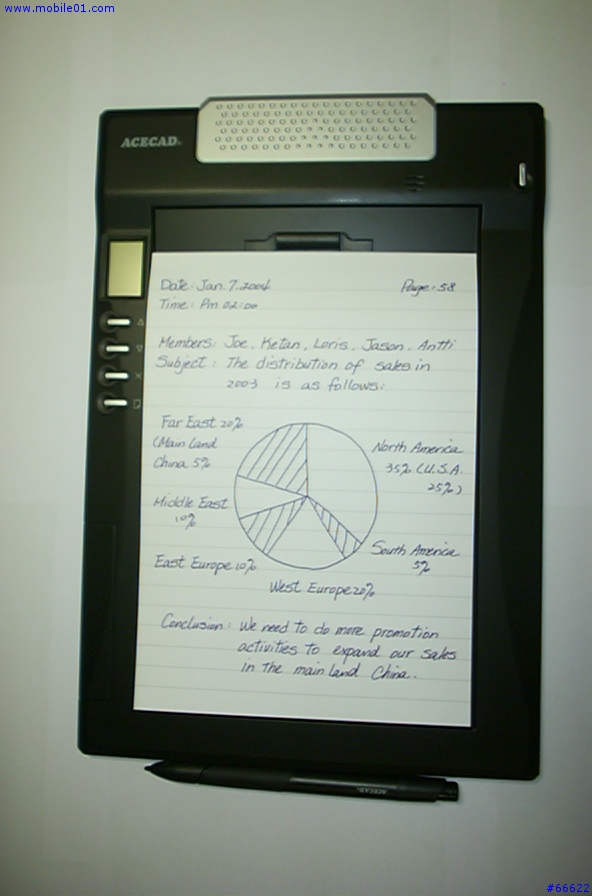 www.mobile01.com
ACECAD
Date: Jan. 7. 2004 Page: 58
Time: Pm 02:00
Members: Joe, Ketan, Loris, Jason, Antti
Subject: The distribution of sales in
2003 is as follows:
Far East 20%
(Main Land
China 5%
North America
35% (U.S.A.
25%)
Middle East
10%
South America
5%
East Europe 10%
West Europe 20%
Conclusion: We need to do more promotion
activities to expand our sales
in the main land China.
ACECAD
#66622